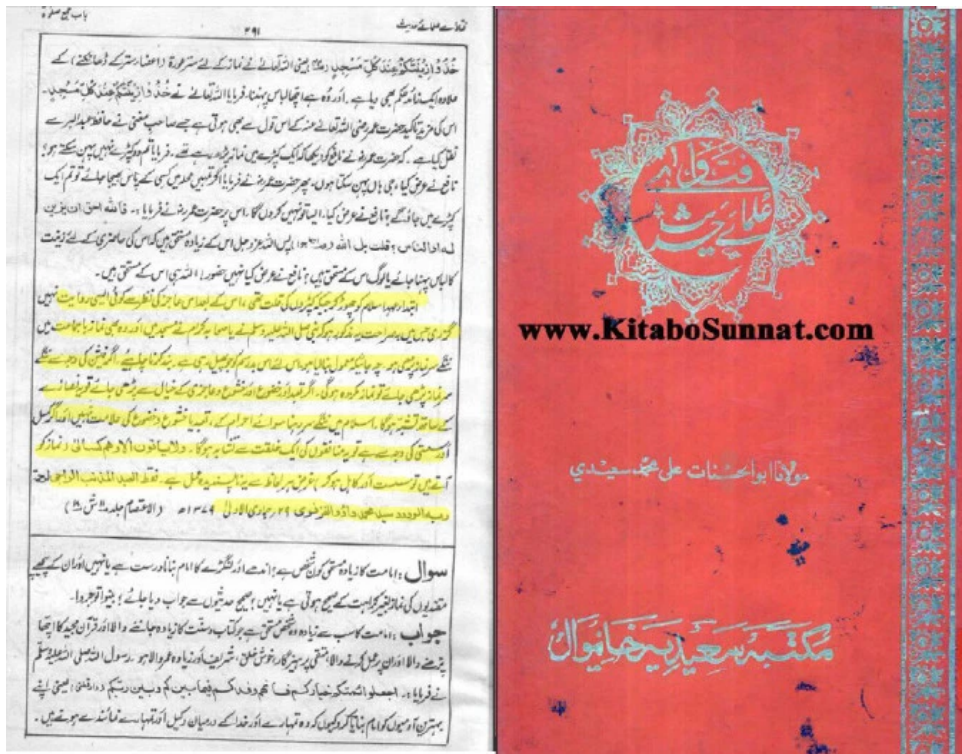 فتاوے علمائے حدیث
۲۹۱
باب جمیع صفوۃ
خُذُوْا زِیْنَتَکُمْ عِنْدَ کُلِّ مَسْجِدٍ یعنی اللہ تعالےٰ نے نماز کے لئے ستر عورۃ (اعضار ستر کے ڈھانکنے) کے
علاوہ ایک زائد حکم بھی دیا ہے۔ اور وُہ ہے اچھا لباس پہننا، فرمایا اللہ تعالےٰ نے خُذُوْا زِیْنَتَکُمْ عِنْدَ کُلِّ مَسْجِدٍ۔
اس کی مزید تاکید حضرت عمر رضی اللہ تعالےٰ عنہ کے اس قول سے بھی ہوتی ہے جسے صاحب مغنی نے حافظ عبدالبر سے
نقل کیا ہے۔ کہ حضرت عمرؓ نے نافع کو دیکھا کہ ایک کپڑے میں نماز پڑھ رہے تھے۔ فرمایا تم دو کپڑے نہیں پہن سکتے ہو؟
نافع نے عرض کیا، جی ہاں پہن سکتا ہوں، پھر حضرت عمرؓ نے فرمایا اگر تمہیں محلہ میں کسی کے پاس بھیجا جائے تو تم ایک
کپڑے میں جاؤ گے؟ نافع نے عرض کیا۔ ایسا تو نہیں کروں گا۔ اس پر حضرت عمرؓ نے فرمایا:۔ فاللہ احق ان یزین
لہ ام الناس؟ قلت بل اللہ پس اللہ عزوجل اس کے زیادہ مستحق ہیں کہ اس کی حاضری کے لئے زینت
کا لباس پہنا جائے یا لوگ اس کے مستحق ہیں؟ نافع نے عرض کیا نہیں حضور! اللہ ہی اس کے مستحق ہیں۔
ابتداء عہد اسلام کو چھوڑ کر جبکہ کپڑوں کی قلت تھی، اس کے بعد اس عاجز کی نظر سے کوئی ایسی روایت نہیں
گزری جس میں بصراحت یہ مذکور ہو کہ نبی صلی اللہ علیہ وسلم نے یا صحابہ کرام نے مسجد میں اور وہ بھی نماز باجماعت میں
ننگے سر نماز پڑھی ہو۔ چہ جائیکہ معمول بنا لیا ہو۔ اس لئے اس بد رسم کو جو پھیل رہی ہے۔ بند کرنا چاہیئے۔ اگر فیشن کی وجہ سے ننگے
سر نماز پڑھی جائے تو نماز مکروہ ہوگی۔ اگر تعبد اور خضوع اور خشوع و عاجزی کے خیال سے پڑھی جائے تو یہ نصارےٰ
کے ساتھ تشبہ ہوگا۔ اسلام میں ننگے سر رہنا سوائے احرام کے، تعبد یا خشوع و خضوع کی علامت نہیں اور اگر کسل
اور سستی کی وجہ سے ہے تو یہ منافقوں کی ایک خلقت سے تشابہ ہوگا۔ ولا یاتون الا وھم کسالیٰ (نماز کو
آتے ہیں تو سست اور کاہل ہو کر) غرض ہر لحاظ سے یہ ناپسندیدہ عمل ہے۔ فقط العبد المذنب الراجی لرحمۃ
ربہ الودود سید محمد داؤد الغزنوی ۲۹/جمادی الاولیٰ ۱۳۷۹ھ (الاعتصام جلد ۱۱ ش ۱۸)
سوال:۔ امامت کا زیادہ مستحق کون شخص ہے؟ اندھے اور لنگڑے کا امام بنانا درست ہے یا نہیں اور ان کے پیچھے
مقتدیوں کی نماز بغیر کراہت کے صحیح ہوتی ہے یا نہیں؟ صحیح حدیثوں سے جواب دیا جائے؟ بینوا توجروا۔
جواب:۔ امامت کا سب سے زیادہ وہ شخص مستحق ہے جو کتاب و سنت کا زیادہ جاننے والا اور قرآن مجید کا اچھا
پڑھنے والا اور ان پر عمل کرنے والا، متقی پرہیزگار، خوش خلق، شریف اور زیادہ عمر والا ہو۔ رسول اللہ صلی اللہ علیہ وسلم
نے فرمایا:۔ اجعلوا ائمتکم خیارکم فانھم وفدکم فیما بینکم وبین ربکم (دارقطنی) یعنی اپنے
بہترین آدمیوں کو امام بنایا کرو کیوں کہ وہ تمہارے اور خدا کے درمیان وکیل اور تمہارے نمائندے ہوتے ہیں۔
فتاوے
علمائے حدیث
www.KitaboSunnat.com
مولانا ابوالحسنات علی محمد سعیدی
مکتبہ سعیدیہ خانیوال